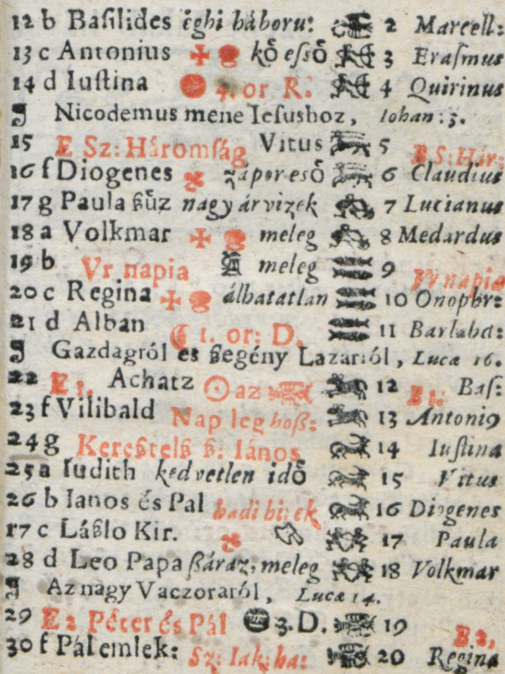 12 b Baſilides éghi háboru: 2 Marcell:
13 c Antonius kȏ essȏ 3 Eraſmus
14 d Iuſtina 4. or R: 4 Quirinus
Nicodemus mene Ieſushoz, Iohan: 3.
15 E Sz: Háromſág Vitus 5 B S: Hár:
16 f Diogenes zápor esȏ 6 Claudius
17 g Paula ßűz nagy árvizek 7 Lucianus
18 a Volkmar meleg 8 Medardus
19 b Vr napia meleg 9 Vr napia
20 c Regina álhatatlan 10 Onophr:
21 d Alban 1. or: D. 11 Barlabá:
Gazdagról es ßegény Lazarról, Luca 16.
22 E 1. Achatz az 12 B 1. Baſ:
23 f Vilibald Nap leg hoß: 13 Antoni9
24 g Kereßtelȏ ß: Iános 14 Iuſtina
25 a Iudith kedvetlen idȏ 15 Vitus
26 b Ianos és Pal hadi hirek 16 Diogenes
17 c Láßlo Kir. 17 Paula
28 d Leo Papa ßáraz, meleg 18 Volkmar
Az nagy Vaczoraról, Luca 14.
29 E 2 Péter és Pál 3. D. 19 B 2,
30 f Pál emlek: Sz: Iak: ha: 20 Regina